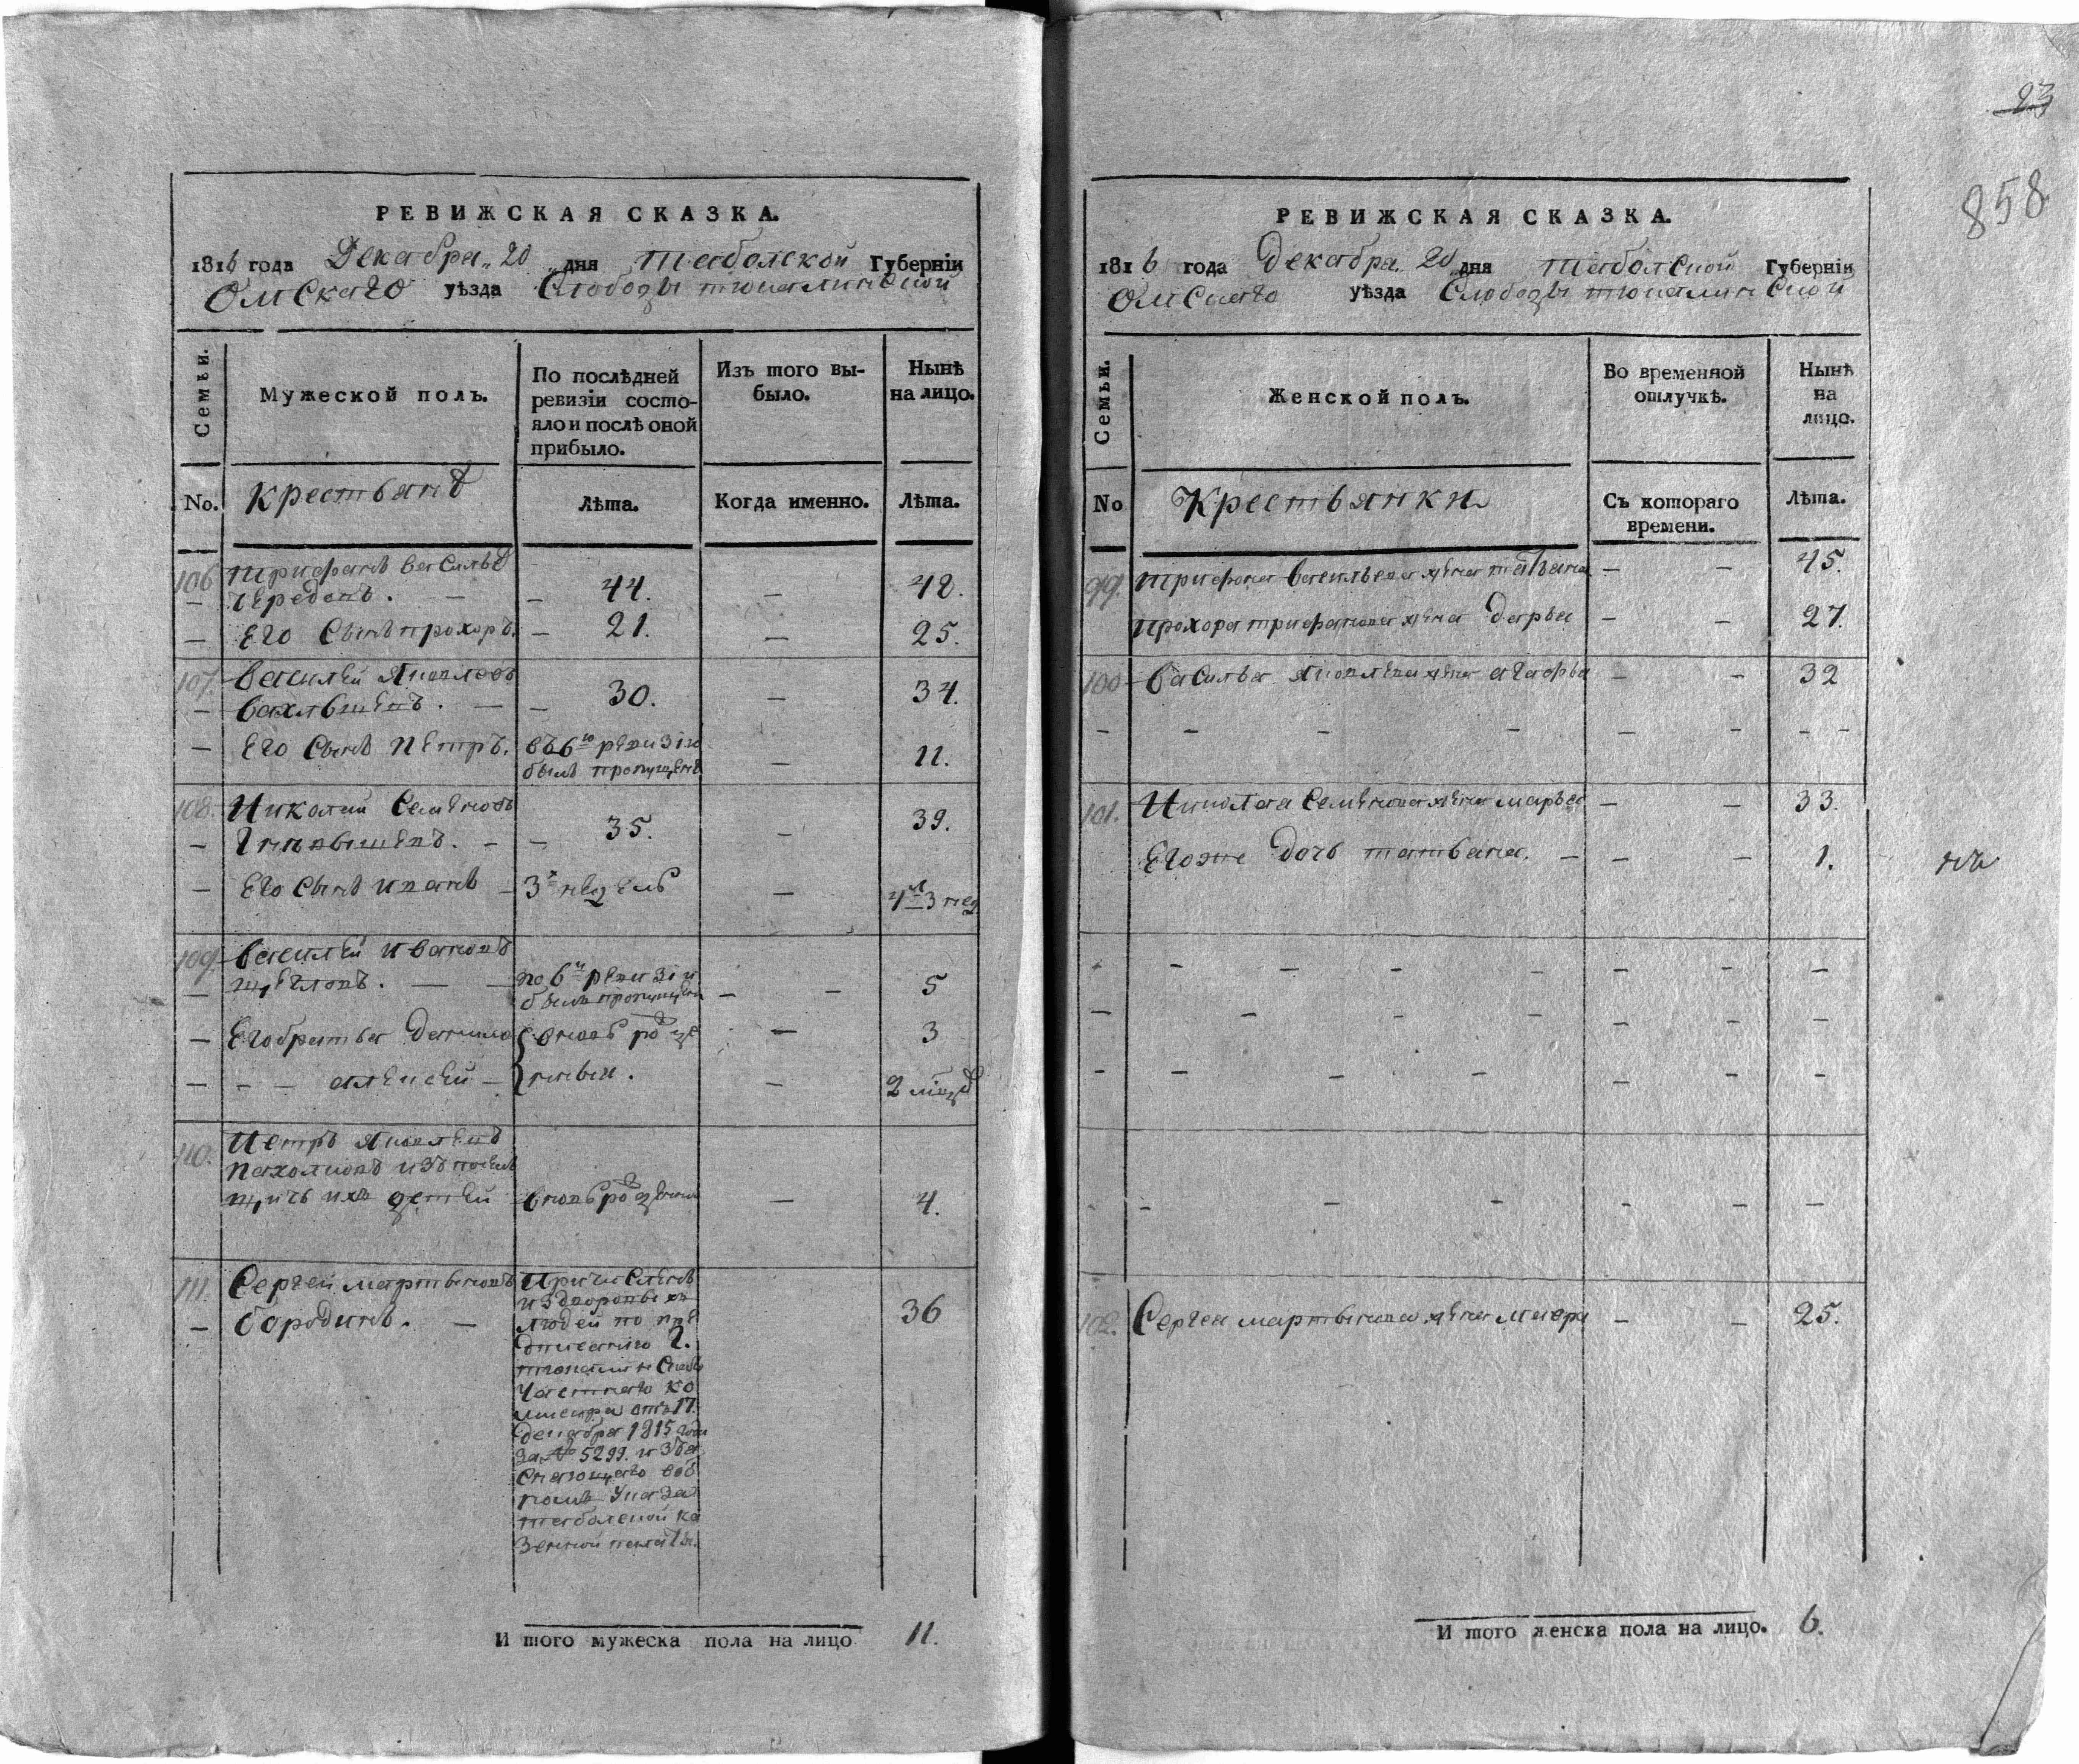 23
858
РЕВИЖСКАЯ СКАЗКА.
1816 года Декабря 20 дня Таболской Губерніи
Омскаго уѣзда Слободы тюкалинской
Семьи.
Мужеской полъ.
По послѣдней
ревизіи состо-
яло и послѣ оной
прибыло.
Изъ того вы-
было.
Нынѣ
на лицо.
No.
крестьянѣ
Лѣта.
Когда именно.
Лѣта.
106 Трифанъ васильевъ
— Чередовъ. — — 44. — 48.
— Его Сынъ прохоръ. — 21. — 25.
107. Василей Яковлевъ
— — — 30. — 34.
— Его Сынъ Петръ. въ 6ю ревизію — 11.
былъ пропущенъ
108. Николай Семеновъ
— — — 35. — 39.
— Его Сынъ иванъ — 3х недель — 4 л 3 нед
109. Василей ивановъ
— Щегловъ. — — по 6й ревизіи — — 5
былъ пропущенъ
— Его братья Данило вновь рож — 3
— — — алексей — денныи. — 2 месц
110. Петръ Яковлевъ
Пахомовъ изъ посель
щичьихъ детей вновь рожденны — 4.
111. Сергей мартыновъ Причисленъ
— бородинъ. — издворовыхъ 36
людей по пре
дписанію Г.
тюкалинскаго
Частнаго ко
мисара отъ 17.
декабря 1815 года
за № 5299. изъ
Указа
таболской ка
зенной палаты.
И того мужеска пола на лицо 11.
РЕВИЖСКАЯ СКАЗКА.
1816 года Декабря 20 дня Таболской Губерніи
Омскаго уѣзда Слободы тюкалинской
Семьи.
Женской полъ.
Во временной
отлучкѣ.
Нынѣ
на
лицо.
No
Крестьянки
Съ котораго
времени.
Лѣта.
99. Трифана васильева жена татьяна — — 45.
Прохора трифанова жена Дарья — — 27.
100 Василья Яковлева жена агафья — — 32
— — — — — — —
101. Николая Семенова жена марья — — 33.
Егоже Дочь татьяна. — — — 1.
102. Сергея мартынова жена мавра — — 25.
И того женска пола на лицо. 6.